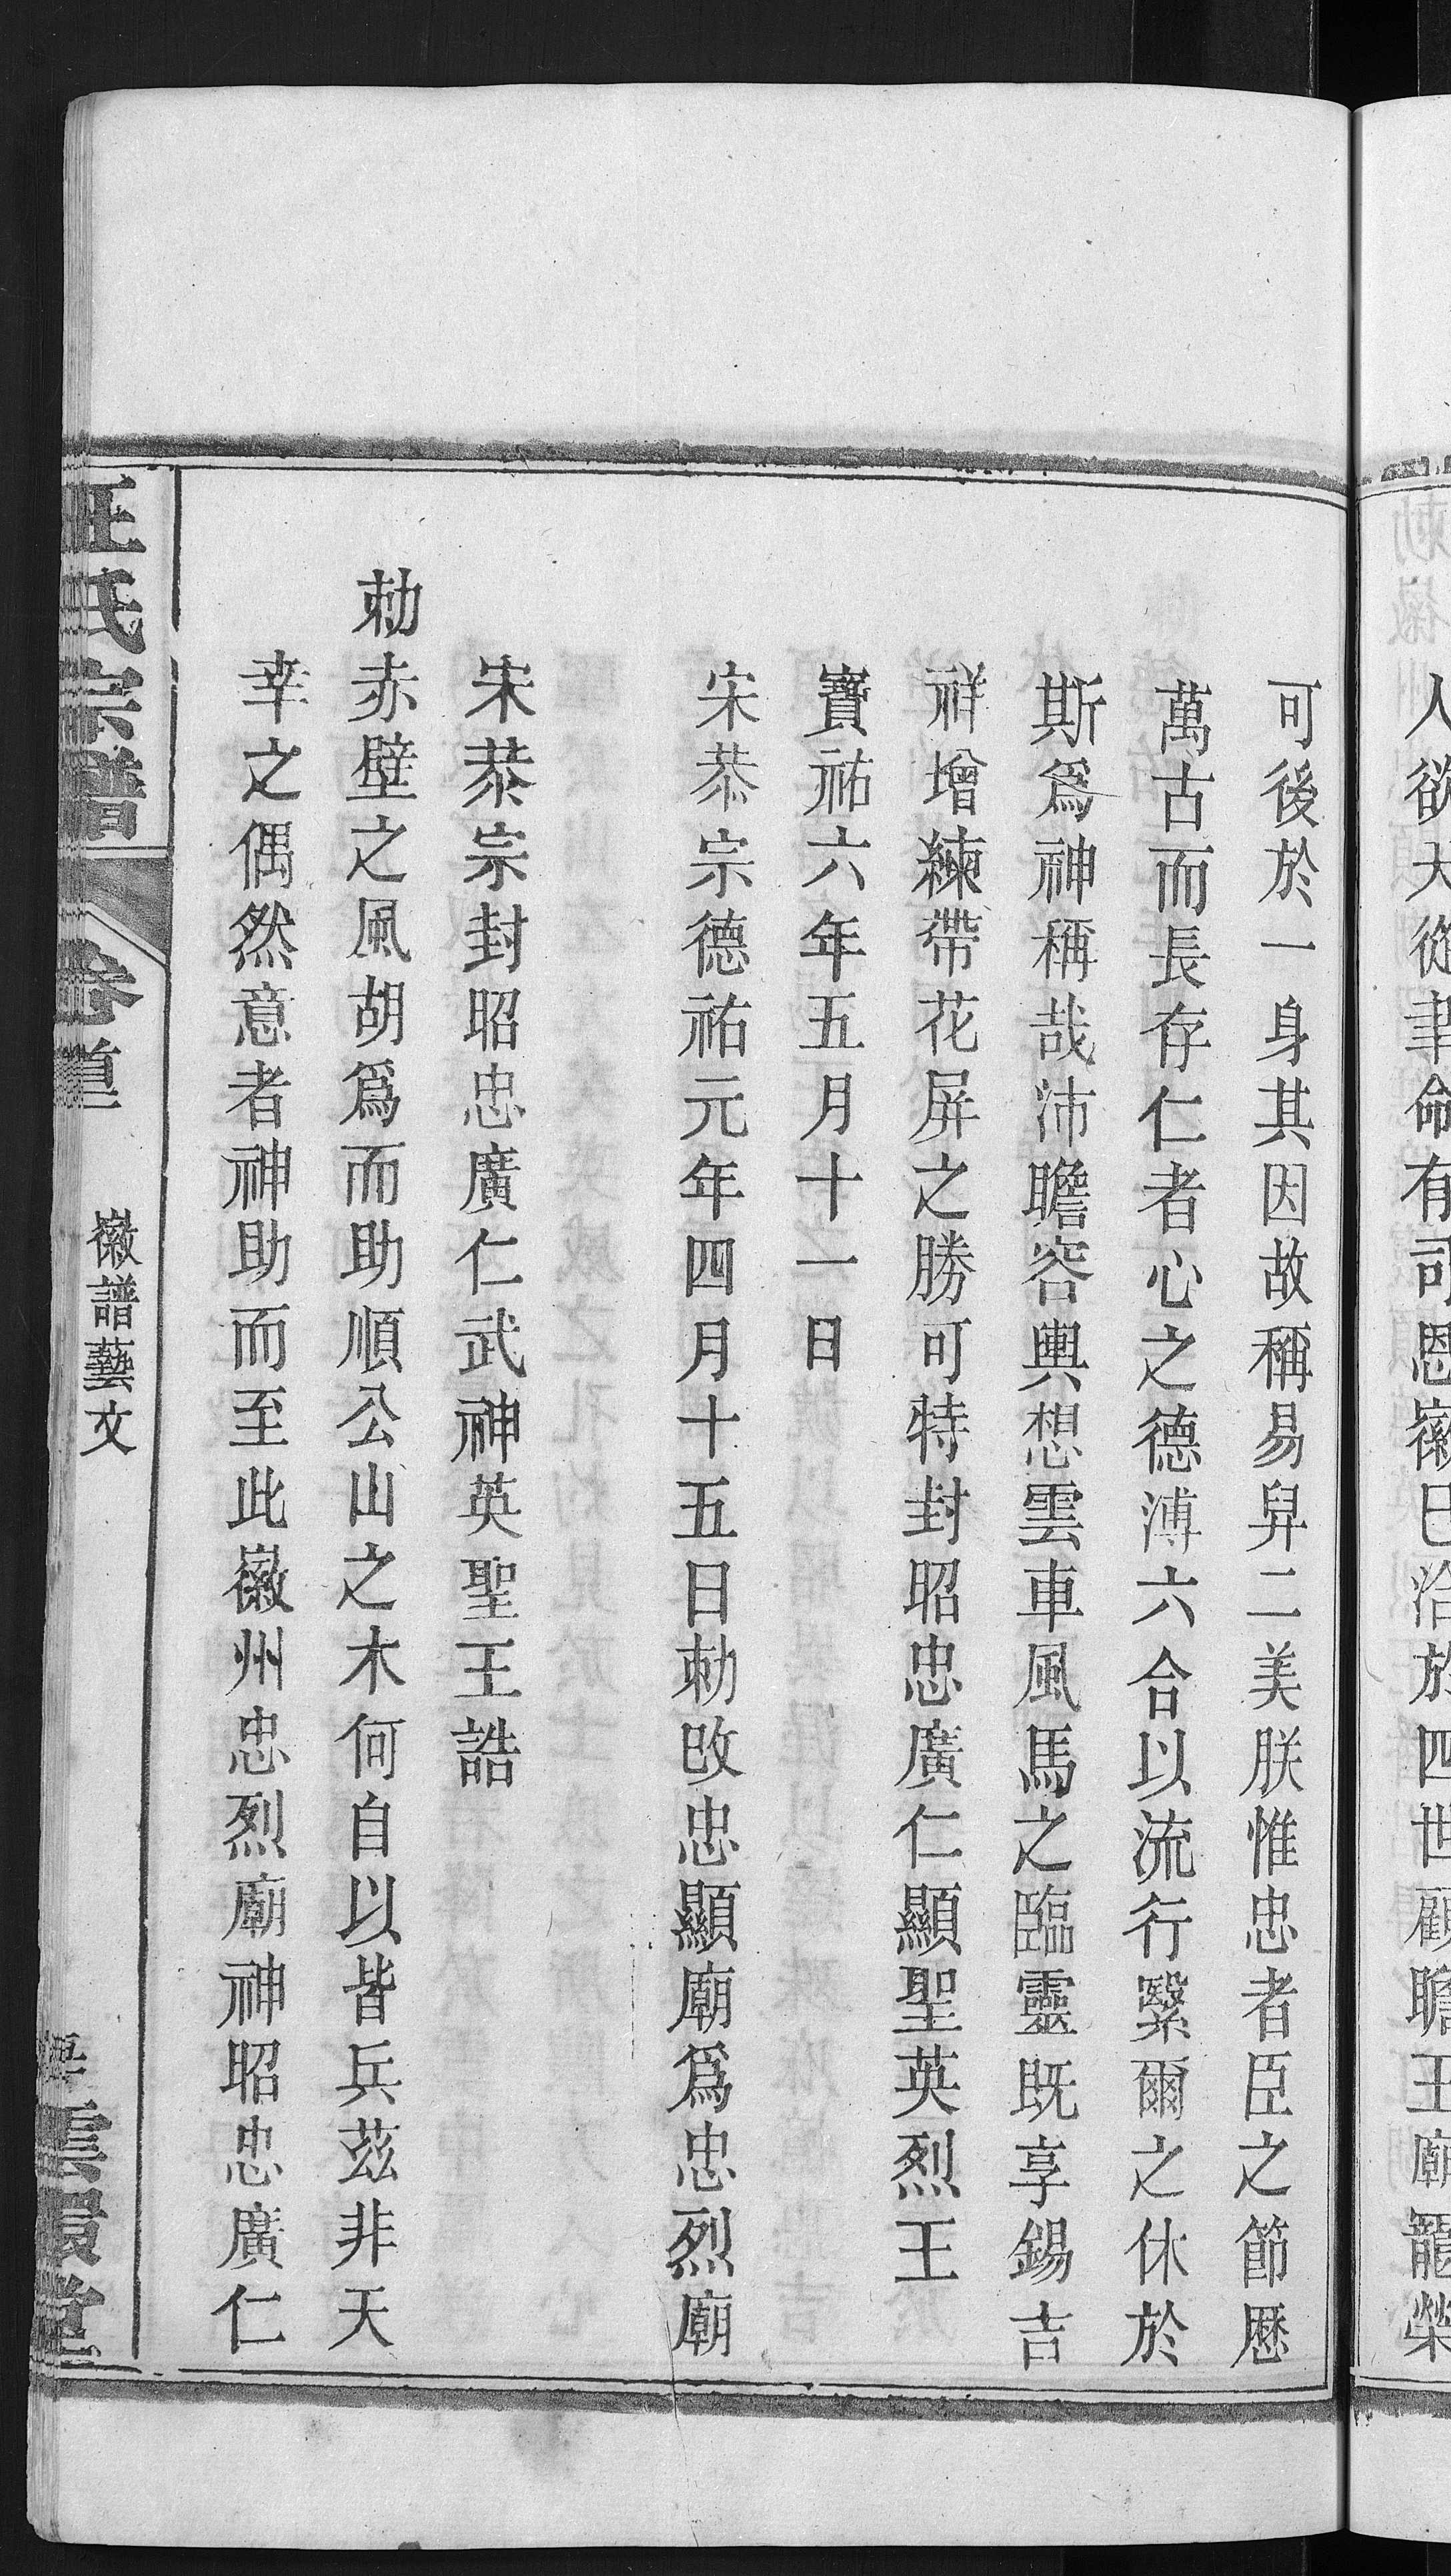 人欲天從聿命有司恩徽已洽於四世顧瞻王廟寵榮
可後於一身其因故稱易舁二美朕惟忠者臣之節厯
萬古而長存仁者心之德溥六合以流行繄爾之休於
斯爲神稱哉沛瞻容輿想雲車風馬之臨靈既享錫吉
祥增練帶花屏之勝可特封昭忠廣仁顯聖英烈王
寳祐六年五月十一日
宋恭宗德祐元年四月十五日勅改忠顯廟爲忠烈廟
宋恭宗封昭忠廣仁武神英聖王誥
勅赤壁之風胡爲而助順公山之木何自以皆兵茲非天
幸之偶然意者神助而至此徽州忠烈廟神昭忠廣仁
汪氏宗譜
卷首
徽譜藝文
雲環堂